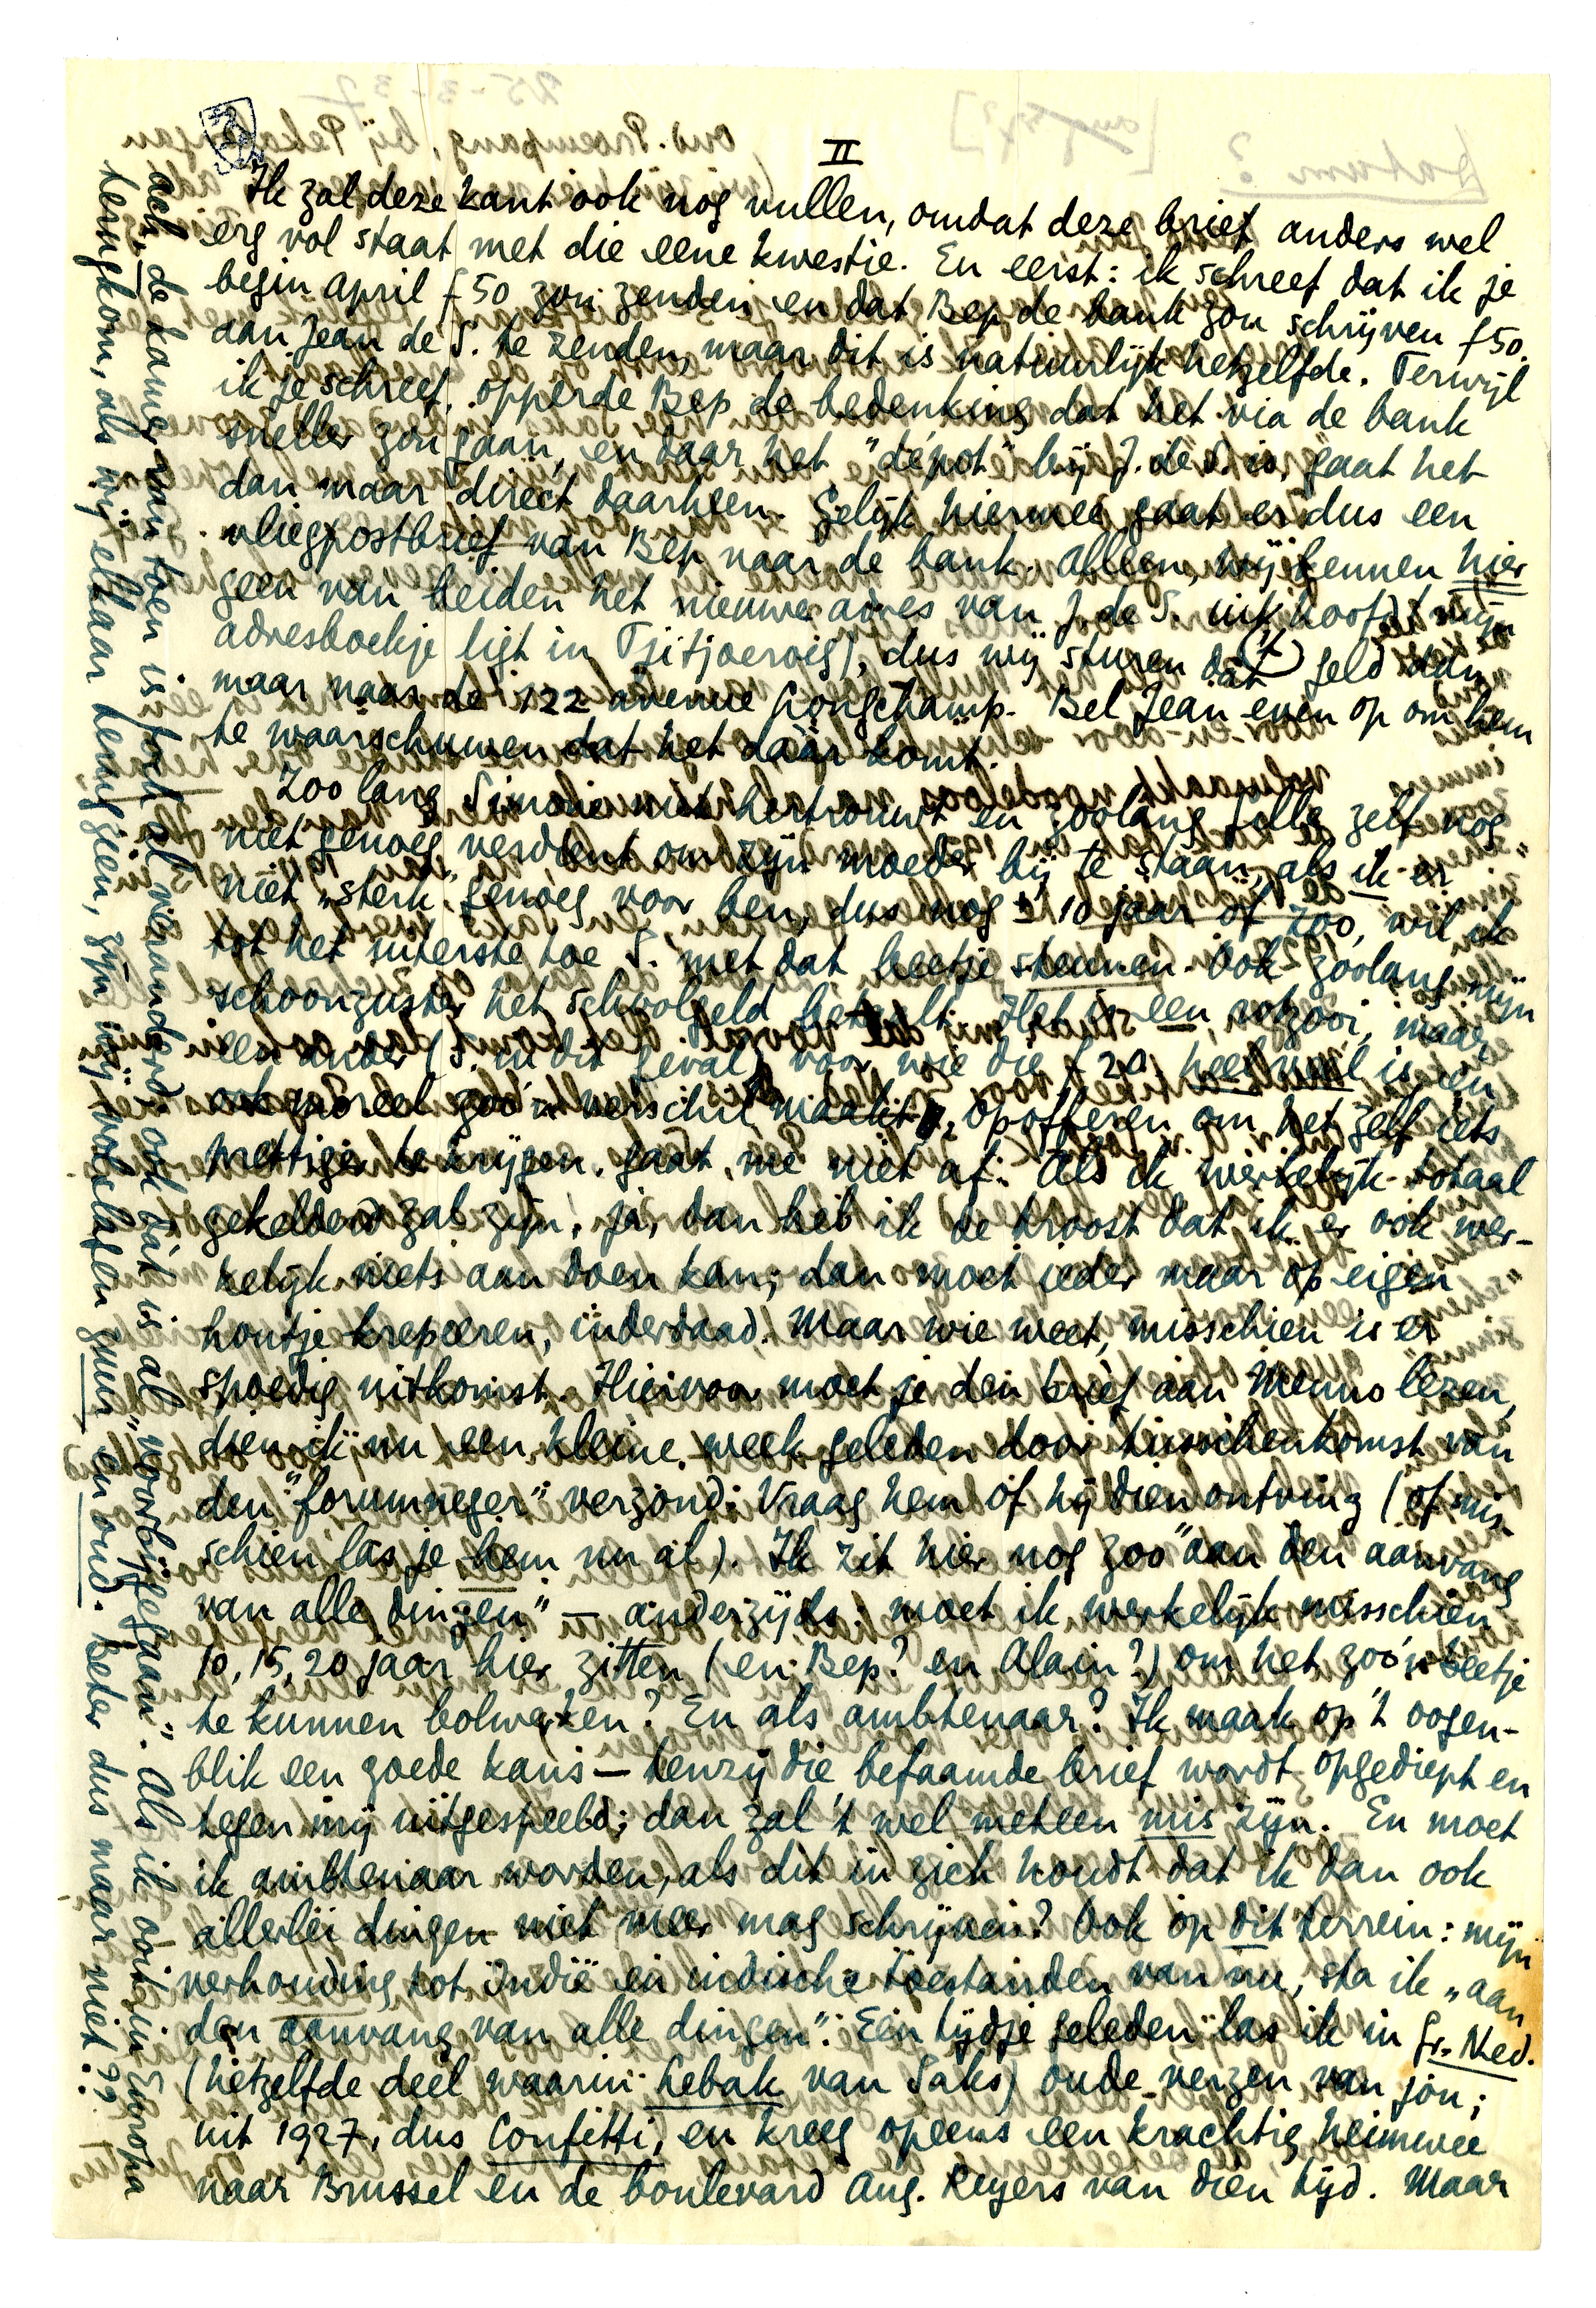 II
Ik zal deze kant ook nog vullen, omdat deze brief anders wel
erg vol staat met die eene kwestie. En eerst: ik schreef dat ik je
begin April f 50 zou zenden en dat Bep de bank zou schrijven f 50.
aan Jean de S. te zenden, maar dit is natuurlijk hetzelfde. Terwijl
ik je schreef, opperde Bep de bedenking dat het via de bank
sneller zou gaan, en daar het "dépot" bij J. de S. is, gaat het
dan maar direct daarheen. Gelijk hiermee gaat er dus een
vliegpostbrief van Bep naar de bank. Alleen, wij kennen hier
geen van beiden het nieuwe adres van J. de S. uit 't hoofd (mijn
adresboekje ligt in Tjitjoeroeg), dus wij sturen dat geld dan
maar naar de 122 avenue Longchamp. Bel Jean even op om hem
te waarschuwen dat het dáár komt.
Zoolang Simone niet hertrouwt en zoolang Gille zelf nog
niet genoeg verdient om zijn moeder bij te staan, als ik er
niet "sterk" genoeg voor ben, dus nog ± 10 jaar of zoo, wil ik
tot het uiterste toe S. met dat beetje steunen. Ook zoolang mijn
schoonzuster het schoolgeld betaalt. Het is een rotzooi, maar
een ander (S. in dit geval) voor wie die f 20 heel veel is, en
ook moreel zoo'n verschil maakt, opofferen om het zelf iets
prettiger te krijgen, gaat me niet af. Als ik werkelijk totaal
gekelderd zal zijn, ja, dan heb ik de troost dat ik er ook wer-
kelijk niets aan doen kan; dan moet ieder maar op eigen
houtje krepeeren, inderdaad. Maar wie weet, misschien is er
spoedig uitkomst. Hiervoor moet je den brief aan Menno lezen,
dien ik nu een kleine week geleden door tusschenkomst van
den "forumneger" verzond. Vraag hem of hij dien ontving (of mis-
schien las je hem nu al). Ik zit hier nog zoo "aan den aanvang
van alle dingen" — anderzijds: moet ik werkelijk misschien
10, 15, 20 jaar hier zitten (en Bep? en Alain?) om het zoo'n beetje
te kunnen bolwerken? En als ambtenaar? Ik maak op 't oogen-
blik een goede kans — tenzij die befaamde brief wordt opgediept en
tegen mij uitgespeeld; dan zal 't wel meteen mis zijn. En moet
ik ambtenaar worden, als dit in zich houdt dat ik dan ook
allerlei dingen niet meer mag schrijven? Ook op dit terrein: mijn
verhouding tot Indië en indische toestanden van nu, sta ik "aan
den aanvang van alle dingen". Een tijdje geleden las ik in Gr. Ned.
(hetzelfde deel waarin Lebak van Saks) oude verzen van jou;
uit 1927, dus Confetti, en kreeg opeens een krachtig heimwee
naar Brussel en de boulevard Aug. Reyers van dien tijd. Maar
ach, de kamer van toen is toch al veranderd, ook dát is al "voorbijgegaan". Als ik óóit in Europa
terugkom, als wij elkaar terugzien, zijn wij volslagen guur en oud. Beter dus maar niet??